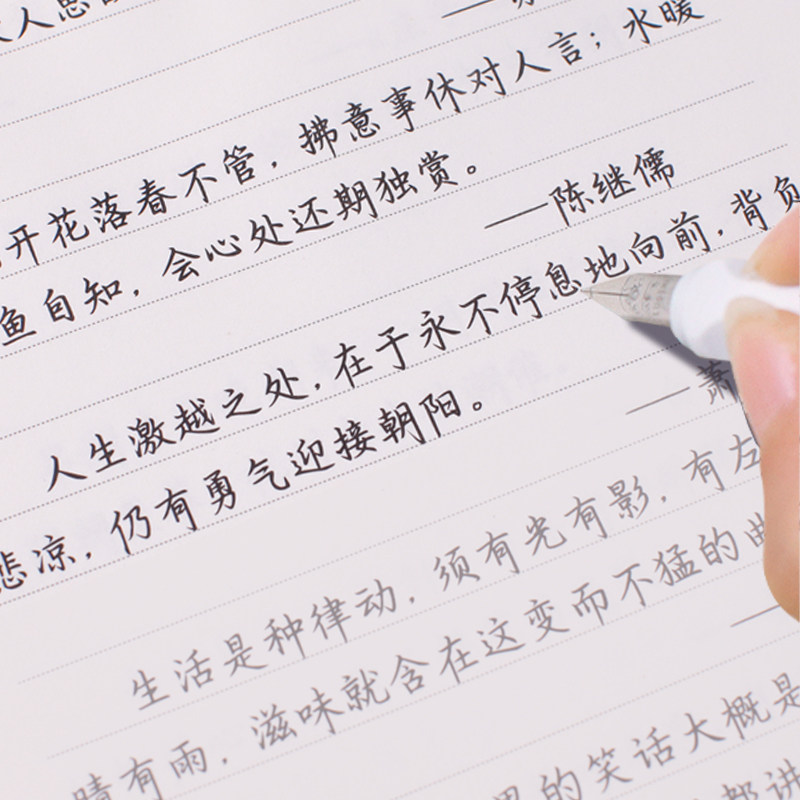 人思
开花落春不管，拂意事休对人言；水暖
鱼自知，会心处还期独赏。
——陈继儒
人生激越之处，在于永不停息地向前，背负
悲凉，仍有勇气迎接朝阳。
——萧
生活是种律动，须有光有影，有左
晴有雨，滋味就含在这变而不猛的曲
的笑话大概是
都讲